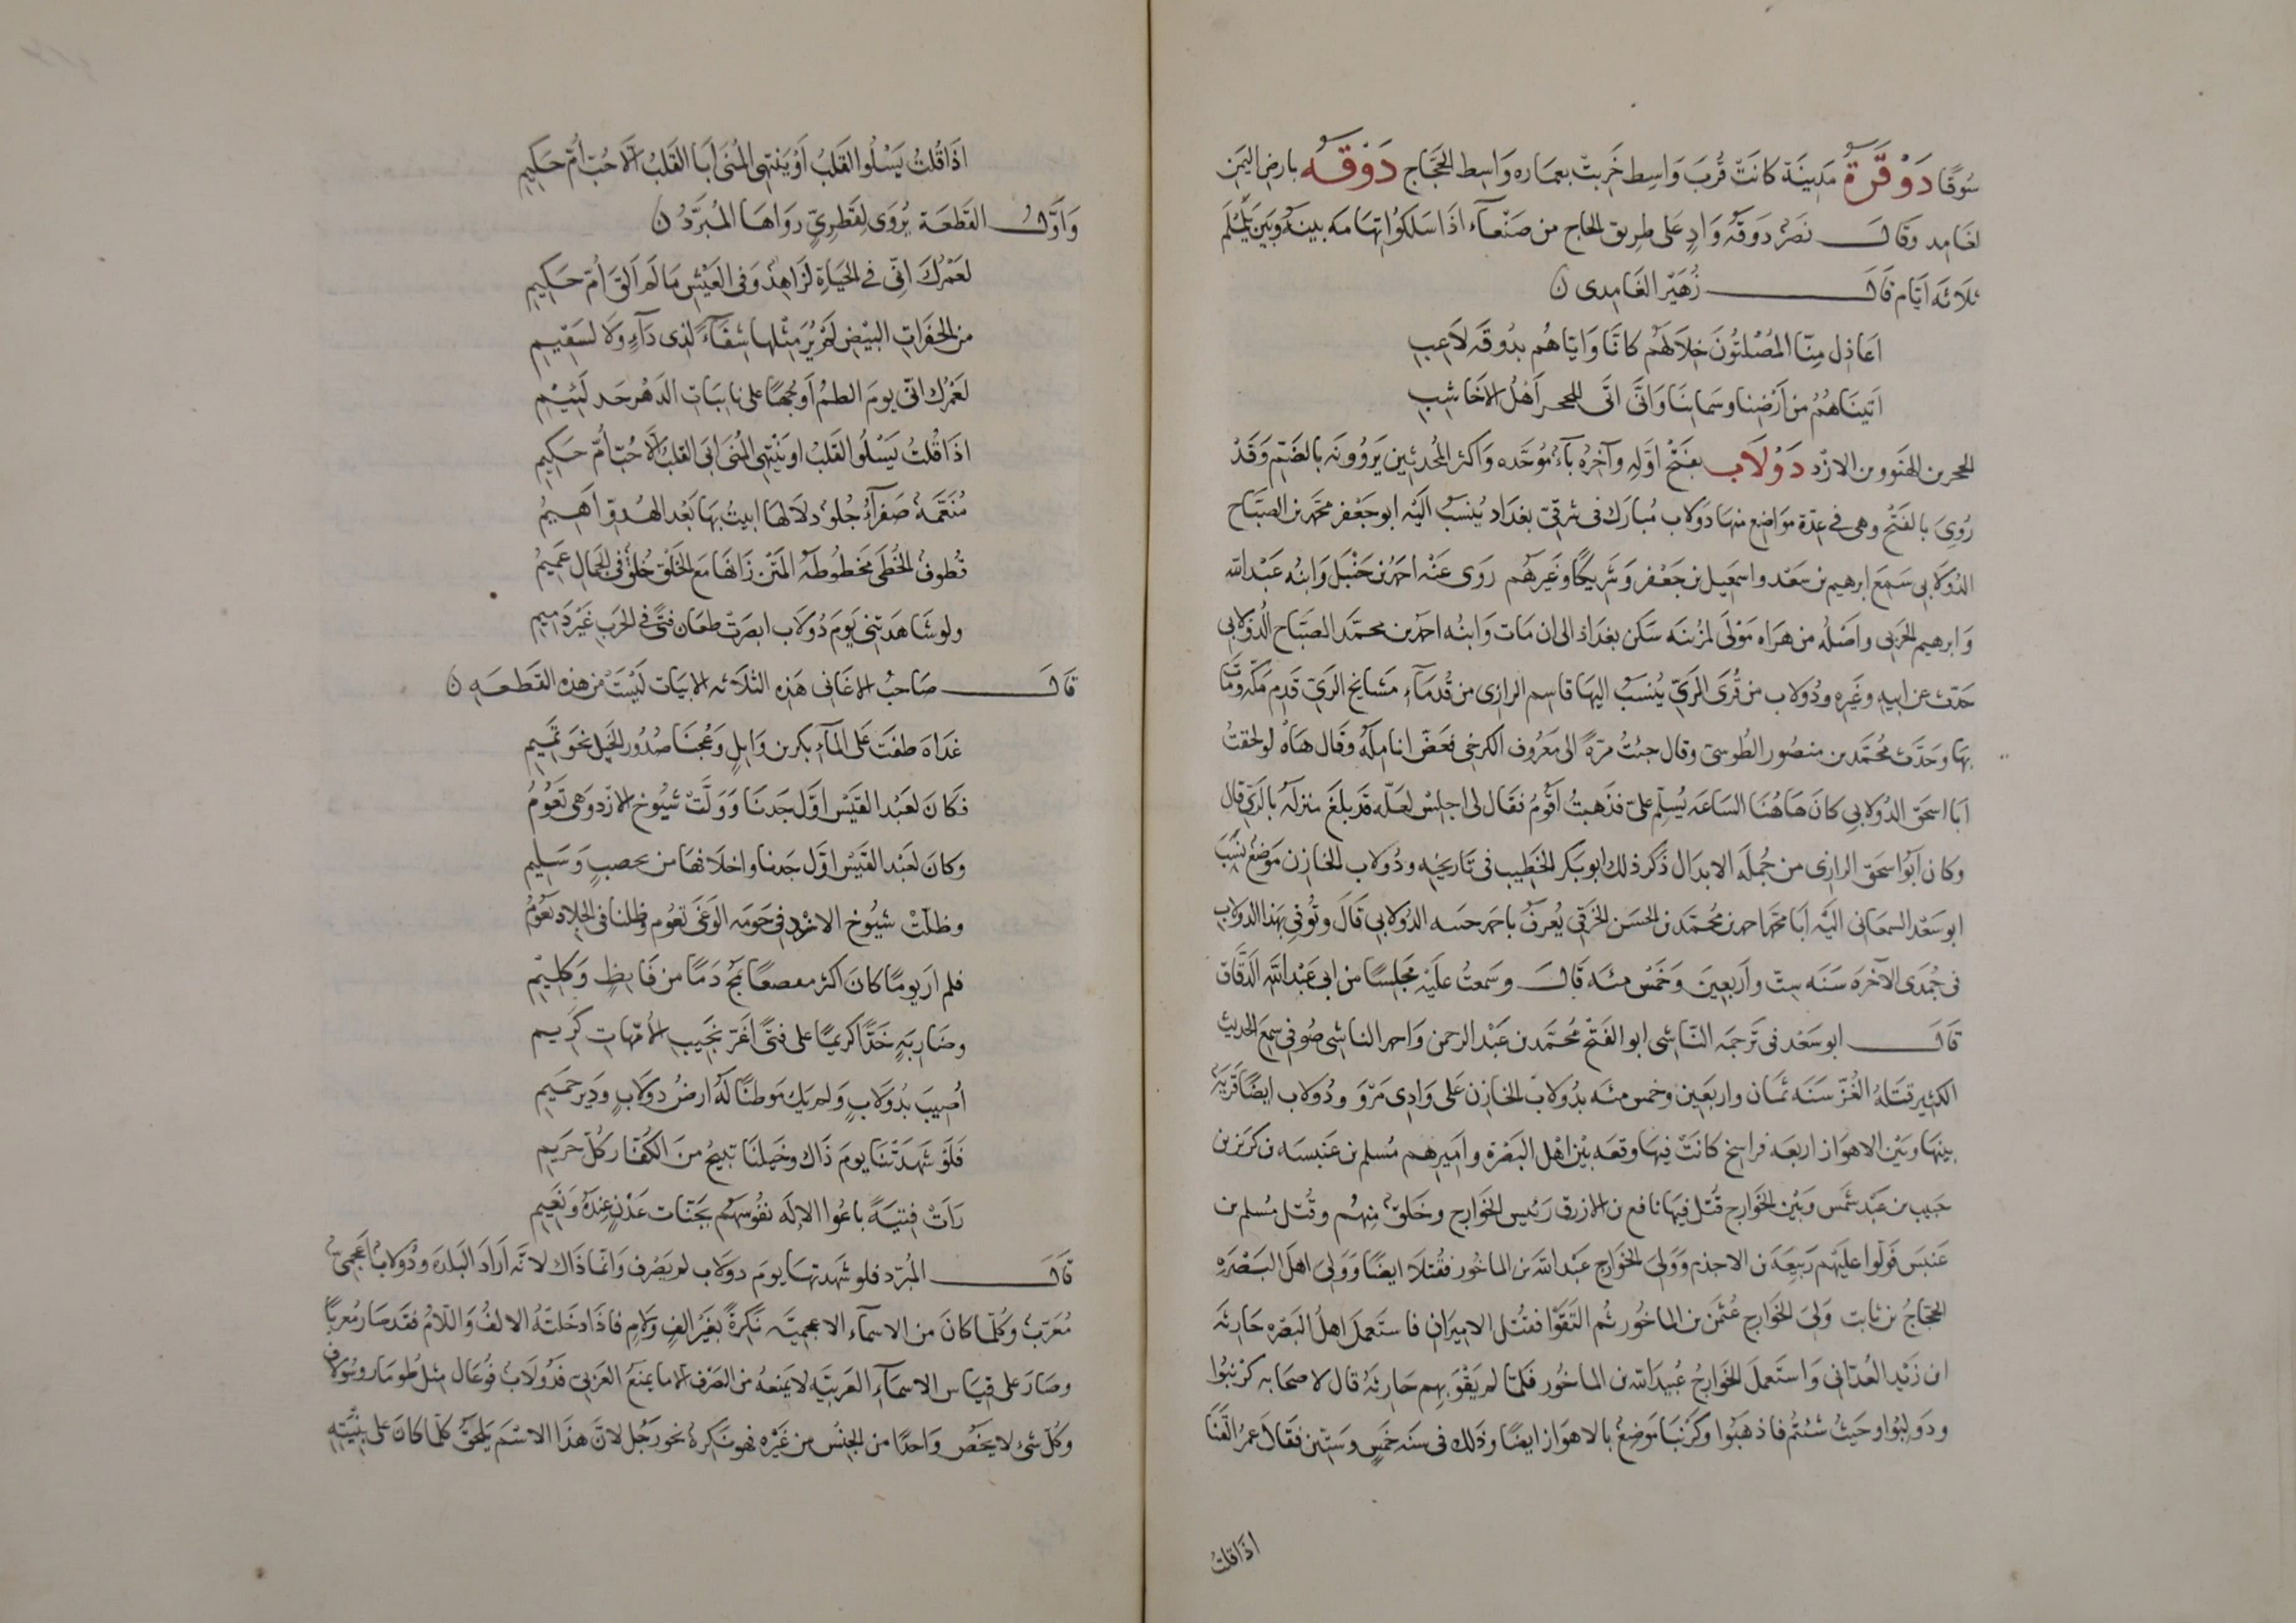 سُوقًا دَوْقَرَةُ مَدِينَة كانَتْ قُربَ وَاسِط خَرِبتْ بعمَاره وَاسِط الحَجَّاج دَوْقَه بارض اليَمن
لغَامِد وَقَالَ نصْر دَوقَه وَادٍ عَلى طريق الحاج من صَنْعآء اذَا سَلكوُا تهَامَه بينَه وَبَيْن يَلَمْلَم
ثلَاثَه ايّام قَالَ زُهَيْر الغَامِدى ن
اعَاذِل مِنّا المُصْلتُونَ خِلَالَهُم كانَّا وَايّاهُم بدُوقَه لَاعِبِ
اتينَاهُمُ من اَرْضِنا وسَمائنَا وَانَّى اتَّى للحجر اَهْلُ الاخَاشِبِ
الحجر بن الهنَو بن الازْد دَوْلَاب بفَتْح اوَّلِه وآخِرُه بآءٌ مُوَحَّده وَاكثر المُحدّثين يَروُونَه بالضَّم وَقَدْ
رُوىَ بالفَتْح وهى فى عِدّة مَوَاضِع منهَا دَوْلاب مُبارَك فى شرقىّ بغدَاد يُنسَبُ الَيْه ابو جَعْفر محمّد بن الصبّاح
الدُولَابى سَمعَ ابرهيم بن سَعْد واسمعيل بن جَعْفر وَشَريكًا وغَيرهُم رَوى عَنْه احمَد بن حَنْبَل وَابنُه عَبْد الله
وَابرهيم الحَربى واصْلُه من هرَاه مَوْلى لمزينَه سَكن بغدَاد الى ان مَات وَابنُه احمَد بن محمّد الصبّاح الدُولابى
حَدّث عن ابيهِ وغَيره ودُولاب من قُرىَ الرَىّ يُنسَبُ اليهَا قاسِم الرازى من قُدمَآء مَشَايخ الرَىّ قَدِمَ مَكّه وَمَات
بهَا وحَدَّث مُحَمّد بن منصُور الطُوسىّ وقال جئتُ مرّةً الى مَعرُوف الكرخى فعَضّ انامِلَه وقَال هَاه لو لحقتُ
ابَا اسحَق الدُولابى كانَ هَاهُنَا السَاعَه يُسلِّم علىَّ فذَهبتُ اَقُومُ فقَال لى اجلِسْ لعلّه قد بلَغ منزلَه بالرَىّ قال
وكان اَبُو اسحَق الرازى من جُملَه الابدَال ذَكر ذلكَ ابو بَكر الخَطِيب فى تَاريخِه ودُولاب الخازن مَوضعٌ نسَبَ
ابو سَعْد السمعَانى اليْه اَبَا محمّد احمَد بن مُحمّد بن الحَسن الخرَقى يُعرفُ باحمد حسه الدُولابى قَالَ وتُوفّى بهَذا الدولَاب
فى جُمدَى الآخرَه سَنَه سِتّ وَاَربعِينَ وخَمْس مئَه قَالَ وسَمعتُ عليْه مَجلِسًا من ابى عَبْد الله الدَقّاق
قَالَ ابو سَعْد فى تَرجمَه النّاشى ابو الفَتْح مُحَمّد بن عَبْد الرحمن وَاحمد الناشى صُوفى سمعَ الحديث
الكثير قتَلَهُ الغُزّ سَنَه ثمَان واربَعِين وخمس مئَه بدُولابَ الخازن عَلى وَادِى مَرْوَ ودُولاب ايضًا قَريَه
بينهَا وبَيْن الاهوَاز اربعَه فراسِخ كانَتْ فيهَا وقعَه بيْن اهْل البَصْرة وامَيرهم مُسلم بن عَنبسَه بن كرَيز بن
حَبيب بن عَبْد شَمْس وَبَيْن الخَوَارج قُتل فيهَا نافع بن الازرق رَئيس الخَوَارج وخَلقٌ مِنهُم وقُتل مُسلم بن
عَنبَس فَولّوا علَيهم رَبيعَه بن الاجذم وَوَلىَ الخوَارج عَبْد الله بن الماخُور فقُتلَا ايضًا وَوَلىَ اهل البَصْرَه
الحجّاجُ بن ثابت وَلىَ الخوَارج عُثمن بن الماخُور ثُم التَقَوْا فقُتل الاميران فاستَعمل اهلُ البَصْره حَارثَه
ابن زَيْد العُدَانى وَاستَعملَ الخوَارجُ عُبيد الله بن الماخُور فلمّا لم يَقوَ بهِم حَارثَه قال لاصحَابه كرنبُوا
ودَولبُوا وحَيثُ شئتُم فاذهَبُوا وكَرنَبَا مَوضعٌ بالاهوَاز ايضًا وذَلك فى سنَه خَمْسٍ وسِتّين فقَالَ عمرُ القَنَا
اذَا قلتُ
اذَا قُلتُ يَسْلُوا القَلبُ اَوْ يَنتهِى المُنَى اَبَا القَلبُ الّا حُبّ اُمّ حَكِيمِ
وَاوّلُ القَطعَة يُرْوَى لِقَطرِىّ رَواهَا المُبَرّدُ ن
لعَمْرُكَ انّى فى الحَيَاةِ لزَاهِدٌ وَفى العَيْش مَا لَم اَلقَ اُمّ حَكِيمِ
من الخَفِرَات البَيْض لَمْ يُرَ مِثْلها شِفَآءً لِذى دَآءٍ ولَا لسَقِيمِ
لعَمْرُك انّى يومَ الطمُ اَوجُههَا على نائبات الدَهْر حَد لَئِيْمِ
اذَا قُلتُ يَسْلُو القَلبُ او يَنْتهِى المُنَى ابَى القلبُ الّا حُبّ اُمّ حَكِيمِ
مُنَعّمَةٌ صَفرَآءُ حُلوٌ دلَالهَا ابيتُ بهَا بَعْد الهُدوّ اَهِيمُ
قطُوفُ الخُطَى مَخطُوطَه المَتْن زَانهَا مَع الخَلْق خُلقٌ فى الجَمال عَمِيمُ
ولو شَاهَدتنى يَومَ دُولَاب ابصَرتْ طعَان فتًى فى الحَرب غَيْر ذَمِيمِ
قَالَ صَاحبُ الاغَانى هَذِه الثلَاثه الابيَات لَيْسَتْ من هذِه القَطعَه ن
غدَاةَ طفَتْ عَلى المآءِ بكر بن وَايلٍ وَعُجنَا صُدُور الخَيل نحوَ تَمِيمِ
فكَانَ لعَبْد القَيْس اوّل جَدنَا وَوَلّتْ شيُوخ الازْد وهى تَعُومُ
وكانَ لعَبْد القَيْس اوّل جَدنا واحلَافهَا من يحصبٍ وَسَلِيمِ
وظلّتْ شيُوخ الازْد فى حَومَه الوَغَى تعُوم وظلنا فى الجلاد نَعُومُ
فلم ارَ يومًا كانَ اكثر مقعصًا يَمُجّ دَمًا من فَايظٍ وَكلِيْمِ
وضَاربَةٍ خَدًّا كريمًا على فتًى اغَرّ نجَيب الاُمّهات كَريم
اُصِيبَ بدُولَابٍ ولم يَك مَوطنًا لَه ارضُ دولَابٍ ودَير حَمِيمِ
فلَو شَهدَتْنَا يومَ ذَاك وخَيلنَا تبيحُ منَ الكُفّار كُلّ حَريمِ
رَاتْ فِتيَةً باعُوا الالَه نفُوسَهُم بجَنّات عَدْنٍ عِندَهُ ونَعِيمِ
قَالَ المُبرّد فلو شَهدتهَا يومَ دولَاب لم يَصْرف وَانّما ذَاك لانّه اَرَادَ البَلدَه ودُولابُ اعجَمىٌّ
مُعرّبٌ وكُلّمَا كانَ من الاسمآء الاعجميّه نَكرةً بغَير الِفٍ وَلَامٍ فاذَا دخَلتْهُ الالفُ وَاللامُ فقَد صَار مُعربًا
وصَارَ على قِيَاس الاسمَآءِ العَربيّه لا يمنعُه من الصَرْف الّا ما يمنعُ العَربى فدُولَابُ فُوعَال مثل طُومَار وسُولَاف
وكُلّ شئ لا يخُصّ وَاحدًا من الجنْس من غَيْره فهو نَكرةٌ نحو رَجُل لانّ هَذَا الاسْمَ يَلحَقُ كلّما كانَ على بنْيَتِه